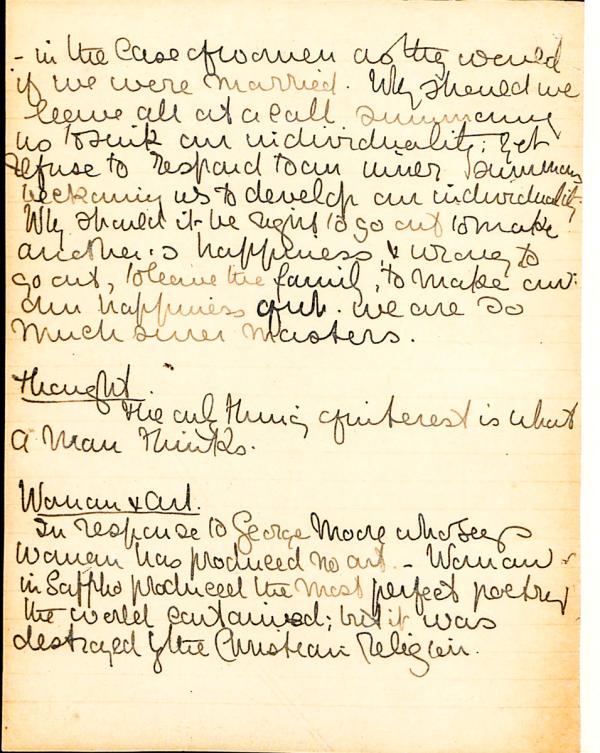 - in the case of women as they would
if we were married. Why should we
leave all at a call summoning
us to sink our individuality; yet
refuse to respond to an inner summons
beckoning us to develop our individuality
Why should it be right to go out to make
another's happiness & wrong to
go out, to leave the family, to make our
own happiness of wh. we are so
much surer masters.
Thought.
The only thing of interest is what
a man thinks.
Woman & art.
In response to George Moore who says
woman has produced no art. - Woman
in Sappho produced the most perfect poetry
the world contained; but it was
destroyed by the Christian religion.